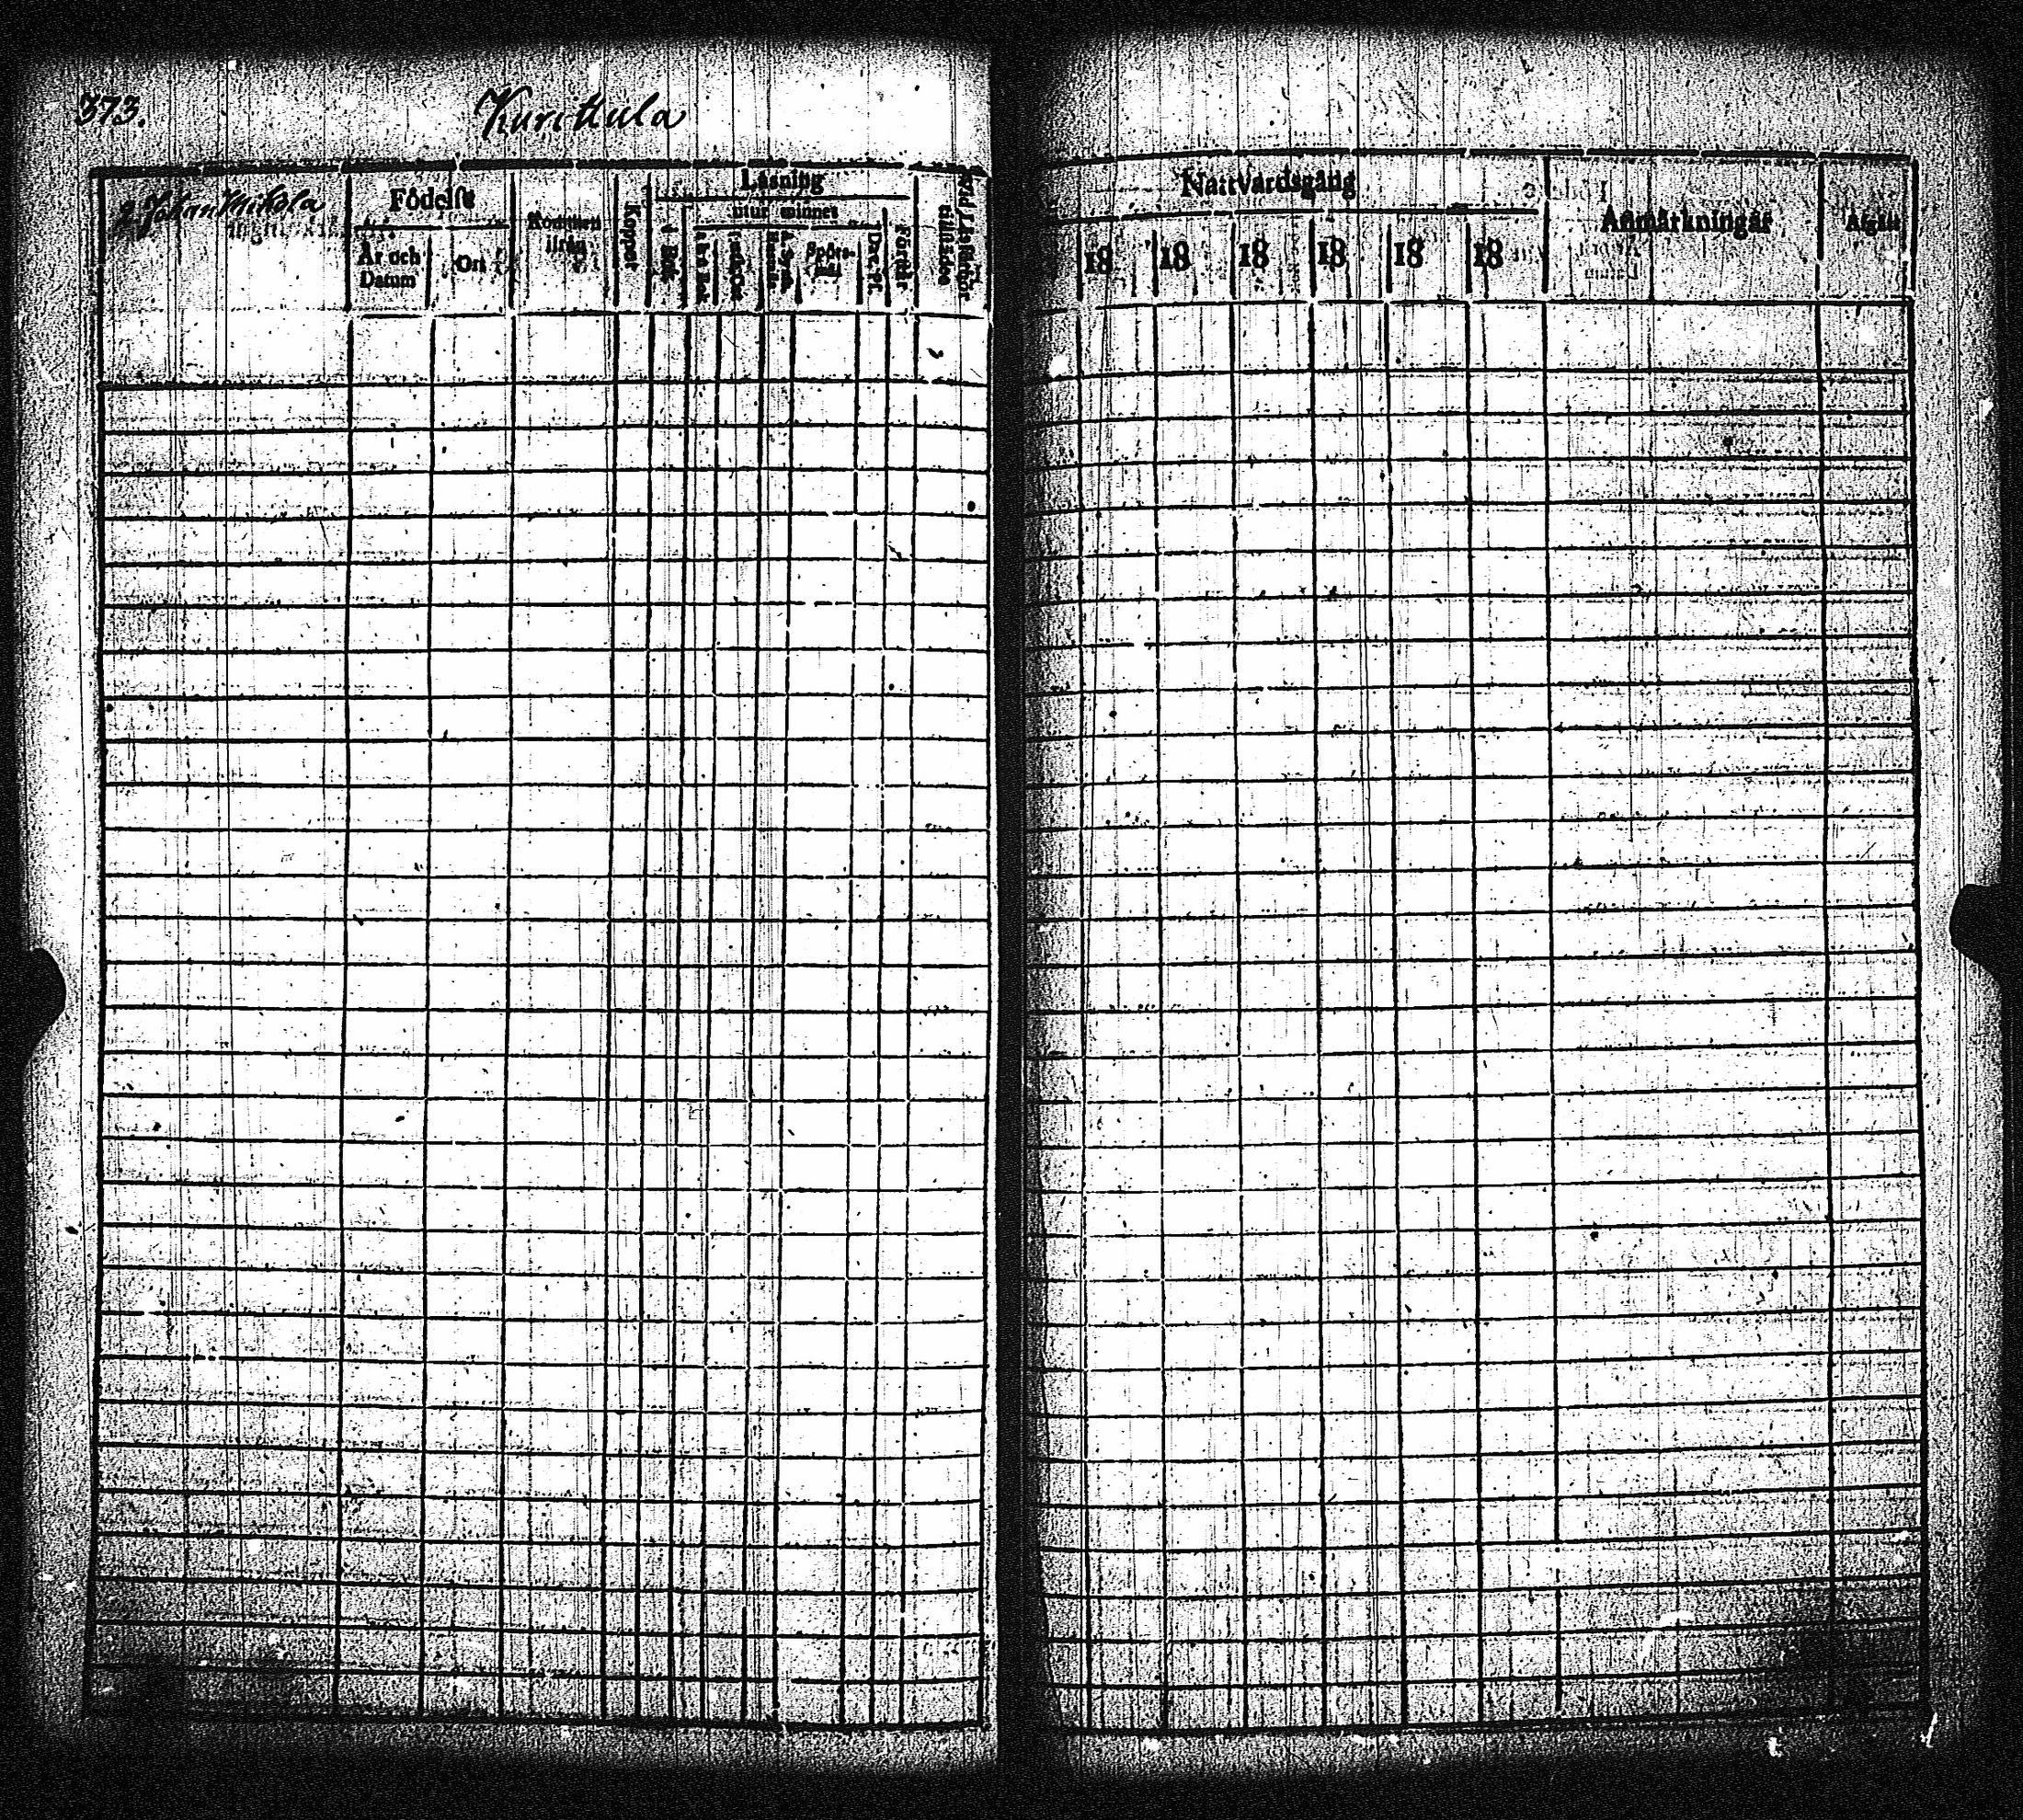 373.
Kurittula
2. Johan Mikola
Födelse
År och
Datum
Ort
Kommen
ifrån
Koppor
Läsning
utur minnet
i Bok
Spörs-
mål
Dav. Ps.
Förstår
Nattvardsgång
18 18 18 18 18 18
Anmärkningar
Afgått